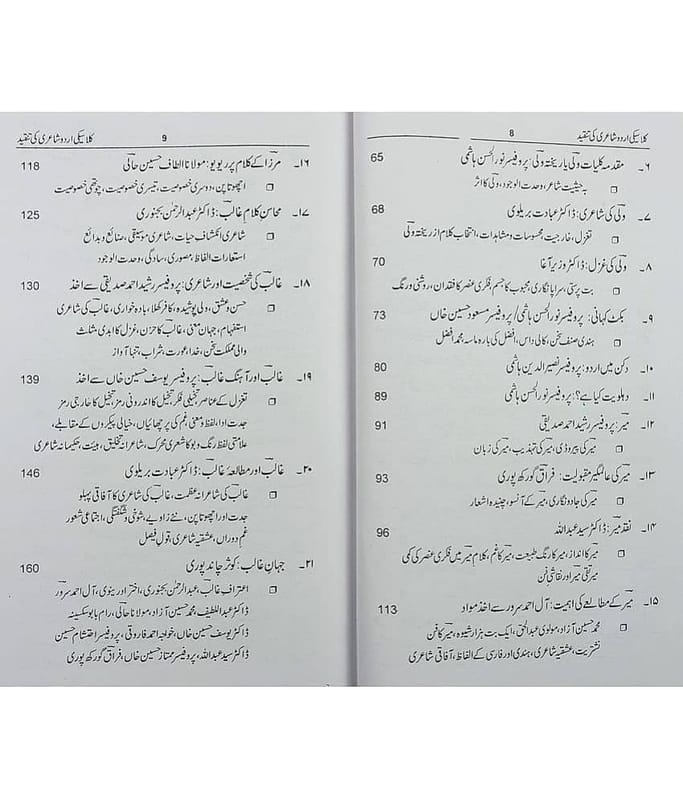 8 کلاسیکی اردو شاعری کی تنقید
۶۔ مقدمہ کلیات ولی یا ریختۂ ولی: پروفیسر نورالحسن ہاشمی 65
بہ حیثیت شاعر، وحدت الوجود، ولی کا اثر
۷۔ ولی کی شاعری: ڈاکٹر عبادت بریلوی 68
تغزل، خارجیت، محسوسات و مشاہدات، انتخاب کلام از ریختہ ولی
۸۔ ولی کی غزل: ڈاکٹر وزیر آغا 70
بت پرستی، سراپا نگاری، محبوب کا جسم، فکری عنصر کا فقدان، روشنی و رنگ
۹۔ بکٹ کہانی: پروفیسر نورالحسن ہاشمی/ پروفیسر مسعود حسین خاں 73
ہندی صنف سخن، کالی داس، افضل کی بارہ ماسہ، محمد افضل
۱۰۔ دکن میں اردو: پروفیسر نصیر الدین ہاشمی 80
۱۱۔ دہلویت کیا ہے؟: پروفیسر نورالحسن ہاشمی 89
۱۲۔ میر: پروفیسر رشید احمد صدیقی 91
میر کی پیروڈی، میر کی تہذیب، میر کی زبان
۱۳۔ میر کی عالمگیر مقبولیت: فراق گورکھ پوری 93
میر کی جادو نگاری، میر کے آنسو، چنیدہ اشعار
۱۴۔ نقد میر: ڈاکٹر سید عبداللہ 96
میر کا انداز، میر کا رنگ طبیعت، میر کا غم، کلام میر میں فکری عنصر کی کمی
میر تقی میر اور نقاشی فن
۱۵۔ میر کے مطالعے کی اہمیت: آل احمد سرور سے اخذ مواد 113
محمد حسین آزاد، مولوی عبدالحق، ایک بت ہزار شیوہ، میر کا فن
نشتریت، عشقیہ شاعری، ہندی اور فارسی کے الفاظ، آفاقی شاعری
کلاسیکی اردو شاعری کی تنقید 9
۱۶۔ مرزا کے کلام پر ریویو: مولانا الطاف حسین حالی 118
اچھوتا پن، دوسری خصوصیت، تیسری خصوصیت، چوتھی خصوصیت
۱۷۔ محاسن کلام غالب: ڈاکٹر عبدالرحمٰن بجنوری 125
شاعری انکشاف حیات، شاعری موسیقی، صنائع و بدائع
استعارات الفاظ، مصوری، سادگی، وحدت الوجود
۱۸۔ غالب کی شخصیت اور شاعری: پروفیسر رشید احمد صدیقی سے اخذ 130
حسن و عشق، ولی پوشیدہ، کافر کھلا، بادہ خواری، غالب کی شاعری
استفہام، جہان معنی، غالب کا حزن، غزل کا ابدی مثلث
والی مملکت سخن، خدا، عورت، شراب، تنہا آواز
۱۹۔ غالب اور آہنگ غالب: پروفیسر یوسف حسین خاں سے اخذ 139
تغزل کے عناصر تخیلی فکر، تخیل کا اندرونی رمز، تخیل کا خارجی رمز
جدت ادا، لفظ و معنی، غم کی پرچھائیاں، خیالی پیکروں کے مقابلے،
علامتی لفظ، رنگ و بو کا شعری محرک، شاعرانہ تخلیق، ہیئت، حکیمانہ شاعری
۲۰۔ غالب اور مطالعۂ غالب: ڈاکٹر عبادت بریلوی 146
غالب کی شاعرانہ عظمت، غالب کی شاعری کا آفاقی پہلو
جدت اور اچھوتا پن، نئے زاویے، شوخی و شگفتگی، اجتماعی شعور
غم دوراں، عشقیہ شاعری، قول فیصل
۲۱۔ جہان غالب: کوثر چاند پوری 160
اعتراف غالب، عبدالرحمٰن بجنوری، اختر اورینوی، آل احمد سرور
ڈاکٹر عبداللطیف، محمد حسین آزاد، مولانا حالی، رام بابو سکسینہ
ڈاکٹر یوسف حسین خاں، خواجہ احمد فاروقی، پروفیسر احتشام حسین
ڈاکٹر سید عبداللہ، پروفیسر ممتاز حسین خاں، فراق گورکھ پوری